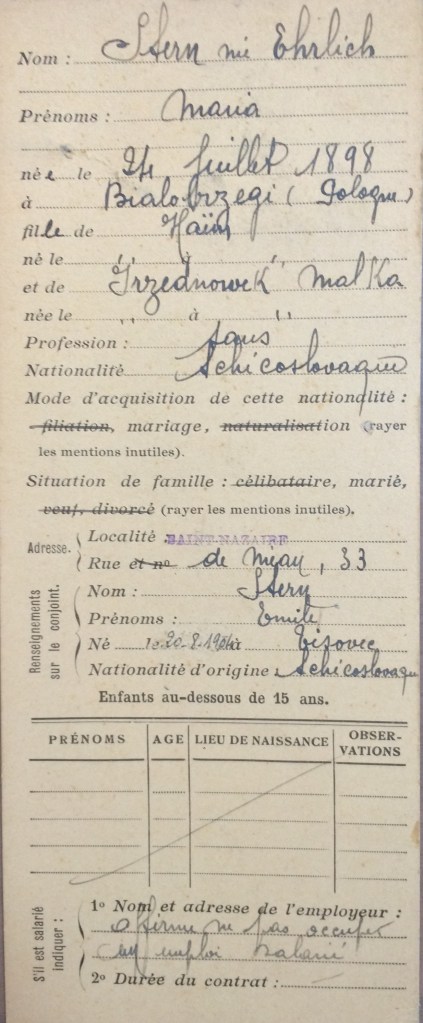 Nom : Stern né Ehrlich
Prénoms : Maria
née le 24 Juillet 1898
à Bialobrzegi ( Pologne )
fille de Haïm
né le " à "
et de Grzednowek Malka
née le " à "
Profession : sans
Nationalité Tchécoslovaque
Mode d'acquisition de cette nationalité :
filiation, mariage, naturalisation (rayer
les mentions inutiles).
Situation de famille : célibataire, marié,
veuf, divorcé (rayer les mentions inutiles).
Adresse. Localité : SAINT-NAZAIRE
Rue et no de Méan, 33
Renseignements sur le conjoint.
Nom : Stern
Prénoms : Emile
Né le 20.8.1904 à Tisovec
Nationalité d'origine : Tchécoslovaque
Enfants au-dessous de 15 ans.
PRÉNOMS AGE LIEU DE NAISSANCE OBSER-
VATIONS
S'il est salarié indiquer :
1o Nom et adresse de l'employeur :
affirme ne pas occuper
un emploi salarié
2o Durée du contrat :